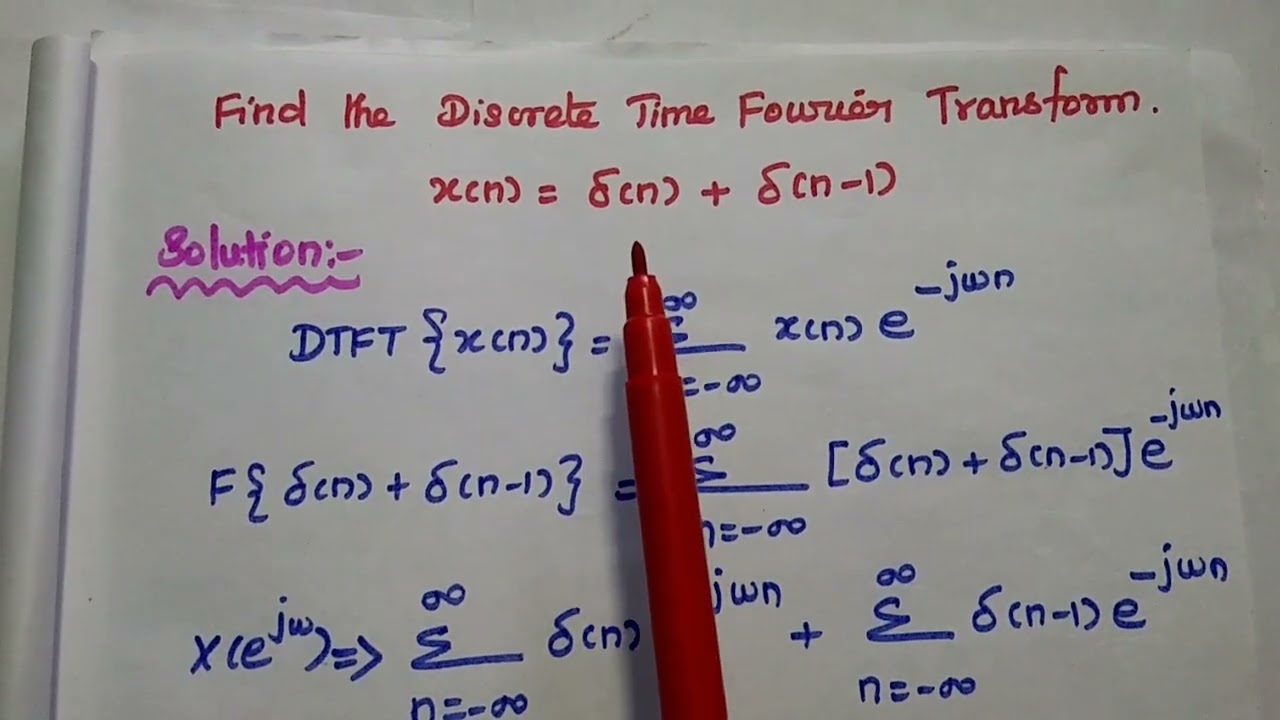 Find the Discrete Time Fourier Transform.
x(n) = δ(n) + δ(n-1)
Solution:-
DTFT {x(n)} = Σ x(n) e^-jωn
∞
=-∞
F{ δ(n) + δ(n-1)} = Σ [δ(n) + δ(n-1)] e^-jωn
∞
n=-∞
X(e^jω) => Σ δ(n) jωn + Σ δ(n-1) e^-jωn
∞ ∞
n=-∞ n=-∞